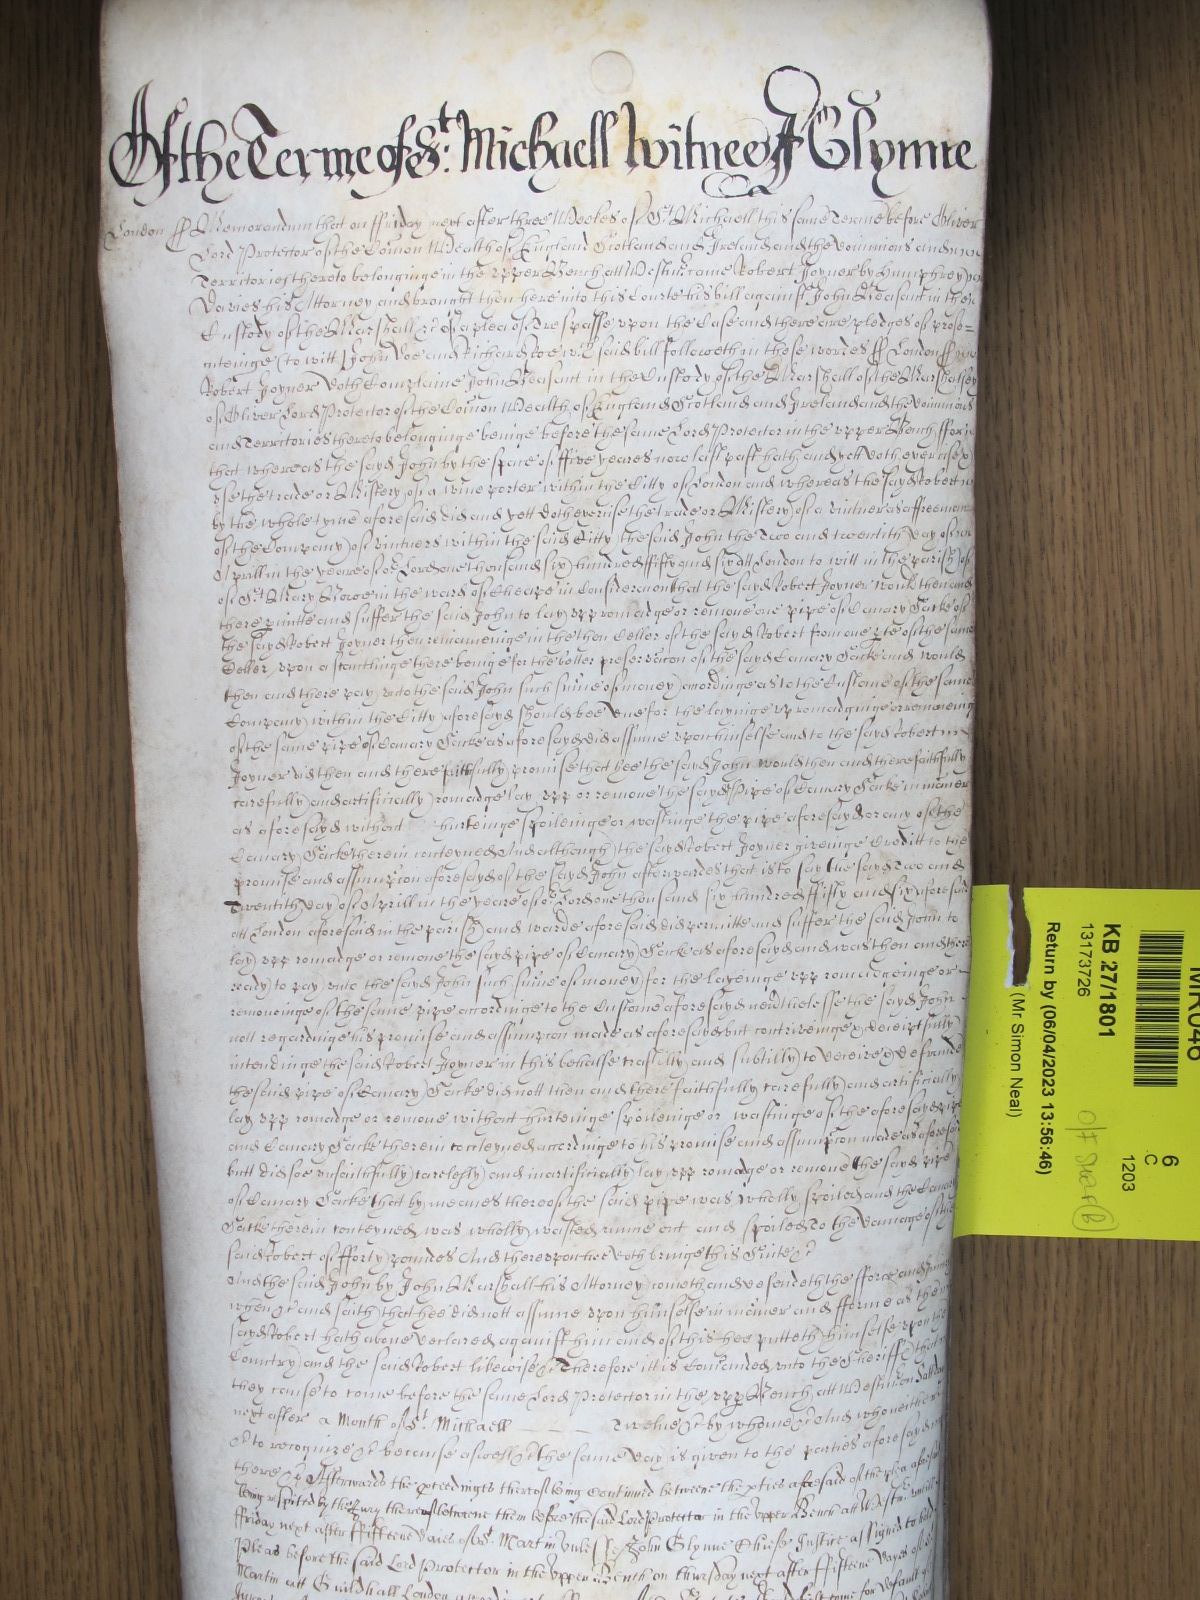 Of the Terme of St. Michaell Witnes J Glynne
London ss Memorandum that on ffriday next after three Weekes of St Michaell this same Terme before Oliver
Lord Protector of the Comon Wealth of England Scotland and Ireland and the Dominions and
Territories thereto belonginge in the vpper Bench att Westmr came Robert Joyner by Humphrey
Davies his Attorney and brought then here into this Courte his bill against John Pleasant in the
Custody of the Marshall &c Of a plea of Trespasse vpon the Case and there are pledges of prose=
cuteinge (to witt) John Doe and Richard Roe wch said bill followeth in these wordes ss London ss
Robert Joyner doth Complaine John Pleasant in the Custody of the Marshall of the Marshalsey
of Oliver Lord Protector of the Comon Wealth of England Scotland and Ireland and the Dominions
and Territories thereto belonginge beinge before the same Lord Protector in the vpper Bench ffor
that whereas the sayd John by the space of ffive yeares now last past hath and yett doth exercise &
vse the trade or Mistery of a wine porter within the Citty of London and whereas the sayd Robert
by the whole tyme aforesaid did and yett doth exercise the trade or Mistery of a vintner as a ffreeman
of the Company of vintners within the said Citty the said John the Two and twentith day of
Aprill in the yeare of or Lord one thousand six hundred ffifty and six att London to witt in the parish
of St Mary Bowe in the ward of Cheape in Consideracon that the sayd Robert Joyner would then and
there pmitte and suffer the said John to lay vpp romadge or remove one pipe of Canary Sacke of
the sayd Robert Joyner then remaineinge in the then Celler of the sayd Robert from one pte of the same
Celler vpon a stantlinge there beinge for the better preservacon of the sayd Canary Sacke and would
then and there pay vnto the said John such sume of money accordinge as to the Custome of the same
Company within the Citty aforesayd should bee due for the layinge vp romadginge or removeing
of the same pipe of Canary Sacke as aforesayd did assume vpon himselfe and to the sayd Robert
Joyner did then and there faithfully promise that hee the sayd John would then and there faithfully
carefully and artificially romadge lay vpp or remove the sayd Pipe of Canary Sacke in maner
as aforesayd without hurteinge spoileinge or wastinge the pipe aforesayd or any of the
Canary Sacke therein conteyned And although the sayd Robert Joyner giveinge Creditt to the
promise and assumpcon aforesayd of the sayd John afterwardes that is to say the sayd Two and
Twentith day of Aprill in the yeare of or Lord one thousand six hundred ffifty and six aforesaid
att London aforesaid in the parish and warde aforesaid did permitte and suffer the said John to
lay vpp romadge or remove the sayd pipe of Canary Sacke as aforesayd and was then and there
ready to pay vnto the sayd John such sume of money for the layeinge vpp romadgeinge or
removeinge of the same pipe accordinge to the Custome aforesayd neverthelesse the sayd John
not regardinge his promise and assumpcon made as aforesayd but contriveinge & deceiptfully
intendinge the said Robert Joyner in this behalfe craftilly and subtilly to deceive & defraude
the said pipe of Canary Sacke did nott then and there faithfully carefully and artificially
lay vpp romadge or remove without hurteinge spoileinge or wastinge of the aforesayd pipe
and Canary Sacke therein conteyned accordinge to his promise and assumpcon made as aforesaid
butt did soe vnfaithfully carelessly and inartificially lay vpp romadge or remove the sayd pipe
of Canary Sacke that by meanes thereof the said pipe was wholly spoiled and the Canary
Sacke therein conteyned was wholly wasted runne out and spoiled To the damage of the
said Robert of fforty poundes And therevpon hee doth bringe this Suite &c
And the said John by John Marshall his Attorney cometh and defendeth the fforce and Injury
when &c and saith that hee did nott assume vpon himselfe in maner and fforme as the
sayd Robert hath above declared against him and of this hee putteth himselfe vpon the
Country and the said Robert likewise &c Therefore itt is Comanded vnto the Sheriff that
they cause to come before the same Lord Protector in the vpp Bench att Westmr on
next after a Month of St. Michaell Twelve &c by whome &c And who neither
&c to recognize &c because aswell &c the same day is given to the parties aforesayd
there &c Afterwards the pceedinges thereof being Continued betweene the pties aforesaid of the plea aforesaid
being respited by the Jury thereof betweene them before the said Lord Protector in the vpper Bench att Westmr vntill
ffriday next after ffifteene daies of St. Martin vnles John Glynne Chiefe Justice assigned to hold
Pleas before the said Lord Protector in the vpper Bench on thursday next after ffifteene dayes of
Martin att Guildhall London come for default
MR046
6
C
1203
KB 27/1801
13173726
Return by (06/04/2023 13:56:46)
(Mr Simon Neal)